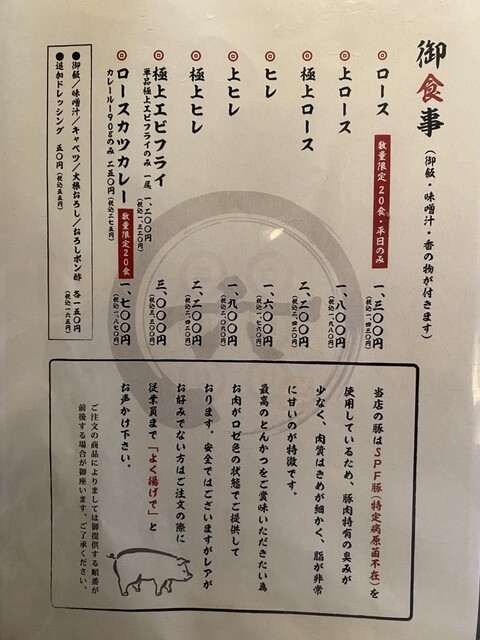 御食事（御飯・味噌汁・香の物が付きます）
ロース 数量限定20食・平日のみ 一、三〇〇円（税込一、四三〇円）
上ロース 一、八〇〇円（税込一、九八〇円）
極上ロース 二、二〇〇円（税込二、四二〇円）
ヒレ 一、六〇〇円（税込一、七六〇円）
上ヒレ 一、九〇〇円（税込二、〇九〇円）
極上ヒレ 二、二〇〇円（税込二、四二〇円）
極上エビフライ 三、〇〇〇円（税込三、三〇〇円）
単品極上エビフライのみ 一尾 一、二〇〇円（税込一、三二〇円）
ロースカツカレー 数量限定20食 一、七〇〇円（税込一、八七〇円）
カレールー190gのみ 二五〇円（税込二七五円）
●御飯／味噌汁／キャベツ／大根おろし／おろしポン酢 各一五〇円（税込一六五円）
●追加ドレッシング 五〇円（税込五五円）
当店の豚はSPF豚（特定病原菌不在）を
使用しているため、豚肉特有の臭みが
少なく、肉質はきめが細かく、脂が非常
に甘いのが特徴です。
最高のとんかつをご賞味いただきたい為
お肉がロゼ色の状態でご提供して
おります。安全ではございますがレアが
お好みでない方はご注文の際に
従業員まで「よく揚げで」と
お声かけ下さい。
ご注文の商品によりましては御提供する順番が
前後する場合が御座います。ご了承ください。